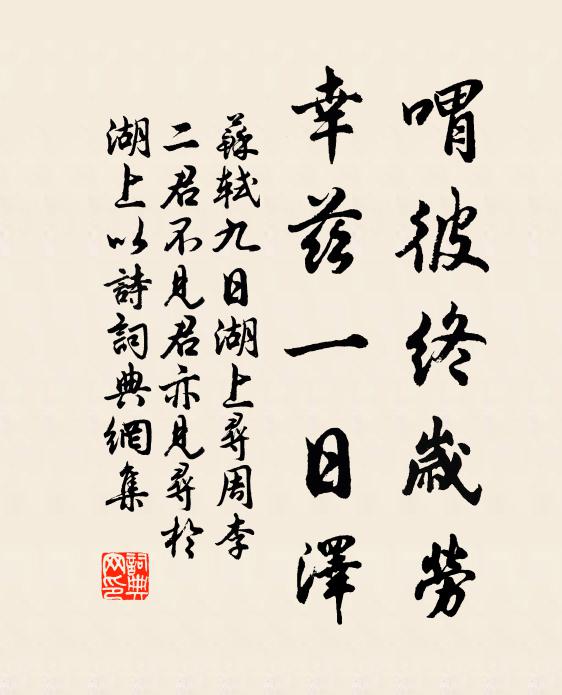 喟彼終歲勞
幸茲一日澤
蘇軾九日湖上尋周李
二君不見君亦見尋於
湖上以詩詞典網集
詞典網印